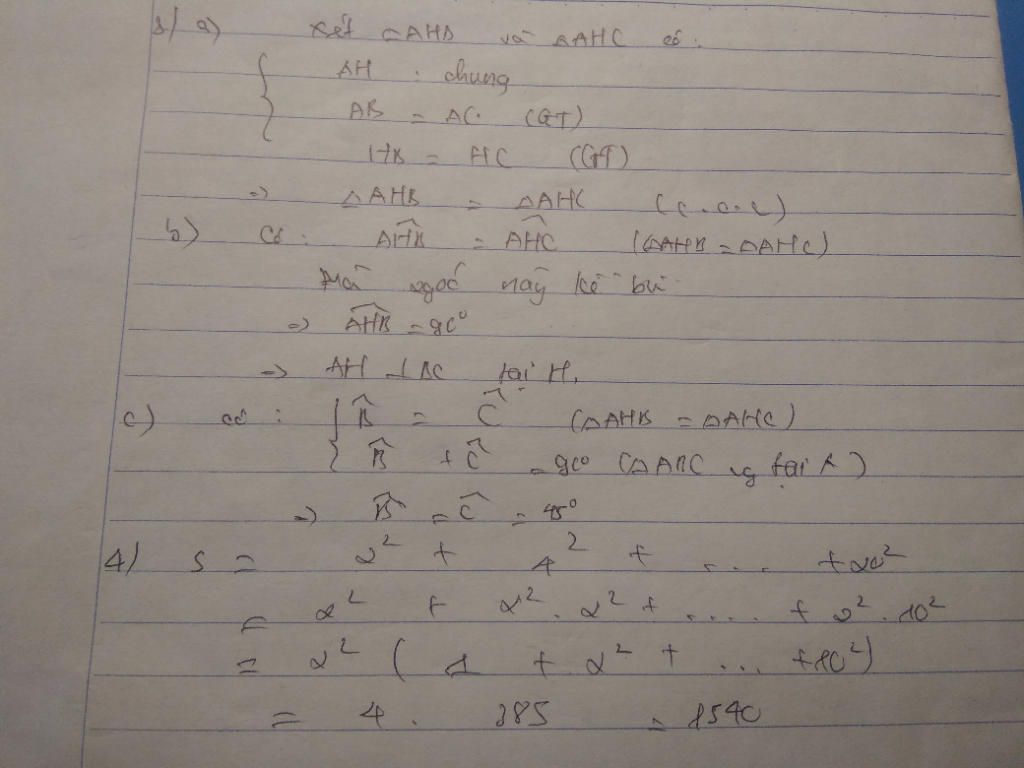 3/ a) Xét ΔAHB và ΔAHC có:
AH : chung
AB = AC. (GT)
HB = HC (GT)
=> ΔAHB = ΔAHC (c.c.c)
b) Có: AHB = AHC (ΔAHB = ΔAHC)
Mà góc này kề bù
=> AHB = 90°
=> AH ⊥ BC tại H.
c) có : { B̂ = Ĉ (ΔAHB = ΔAHC)
B̂ + Ĉ = 90 (ΔABC vg tại A)
=> B̂ = Ĉ = 45°
4) S = 2² + 4² + .... + 20²
= 2² + 2².2² + ..... + 2².10²
= 2² ( 1 + 2² + ... + 10²)
= 4 . 385 = 1540